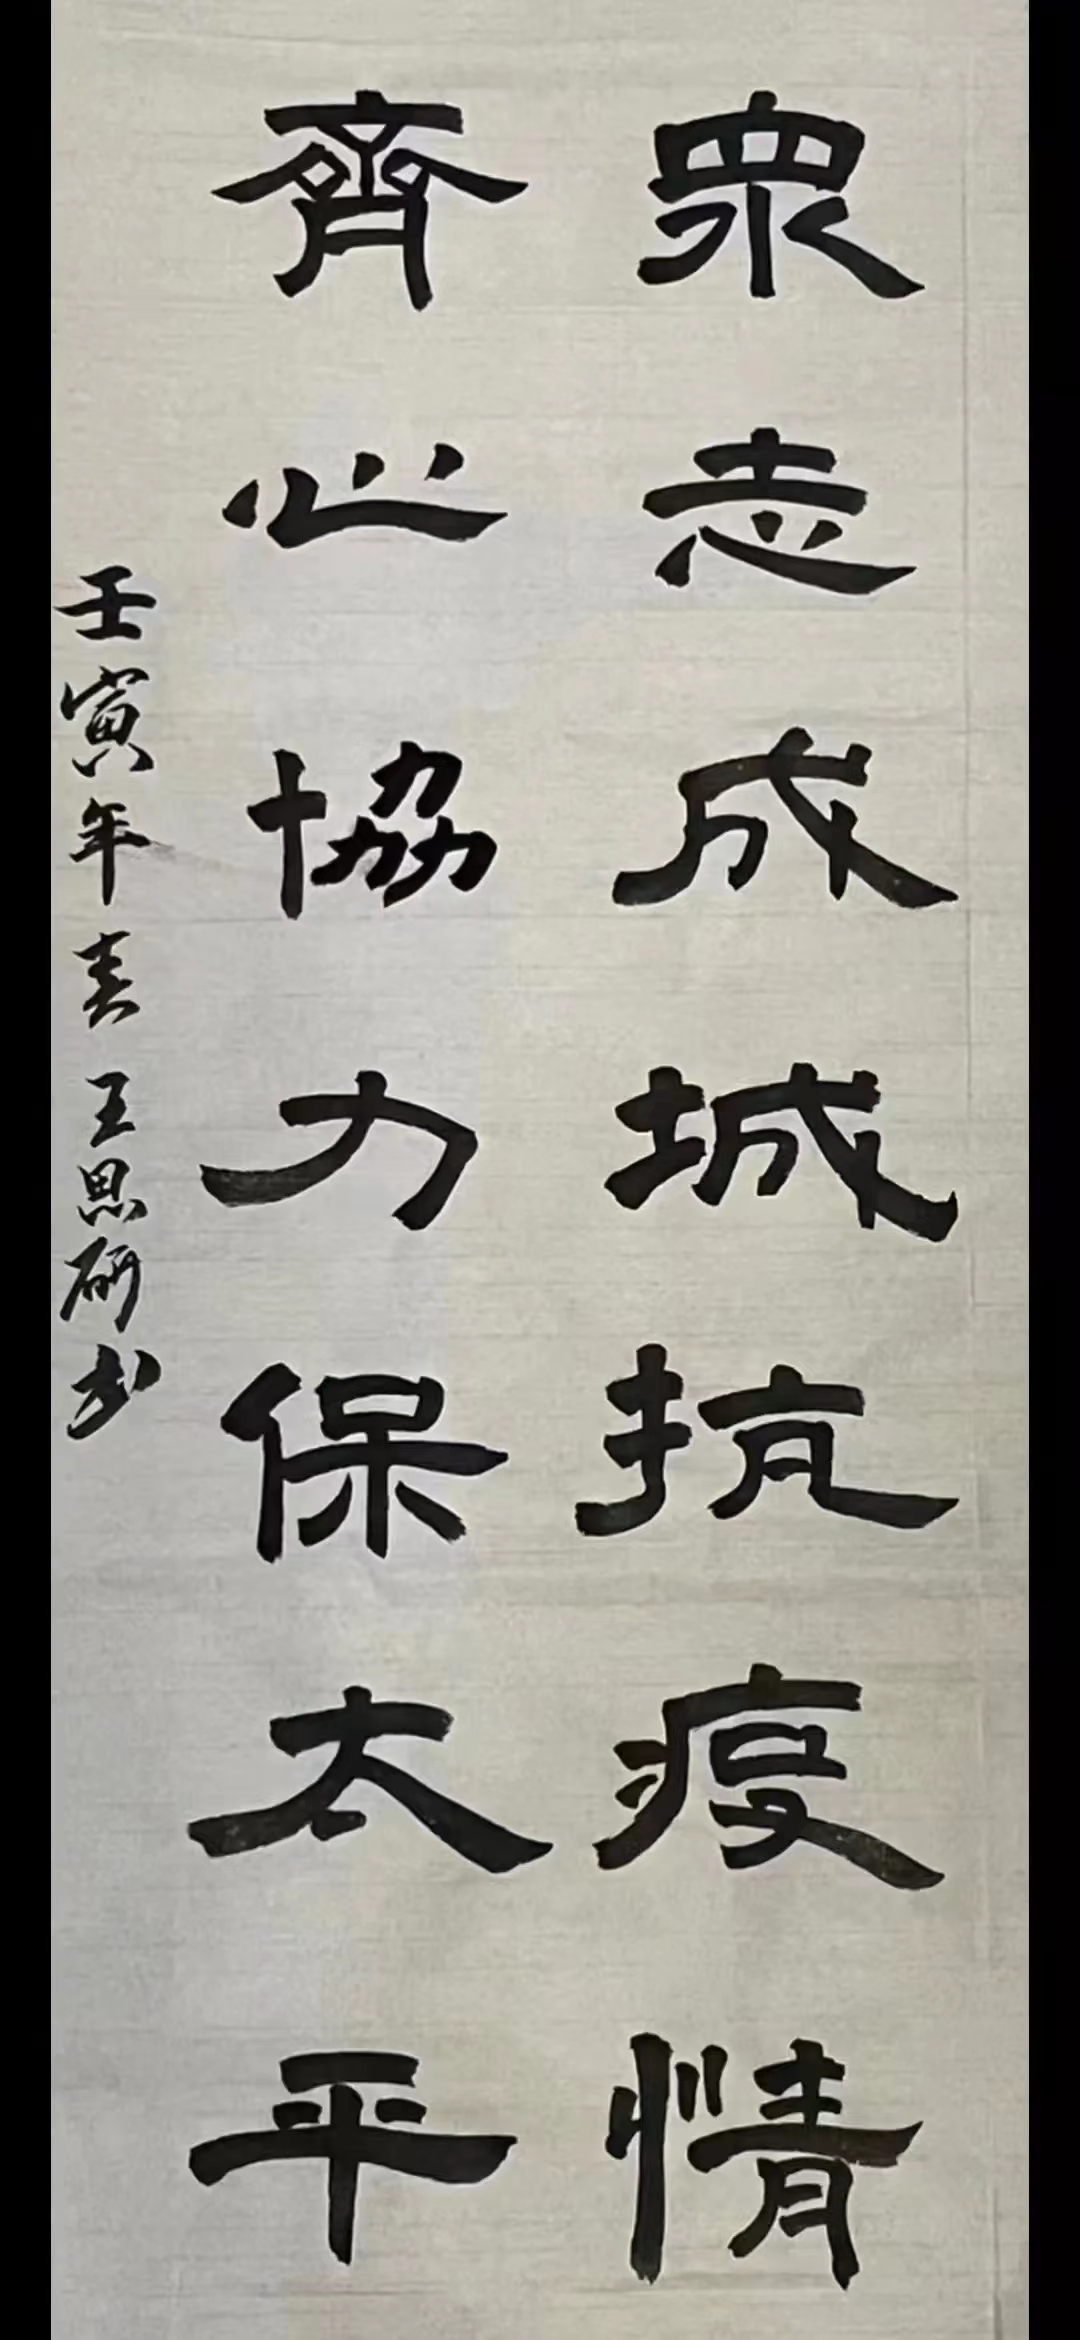 眾志成城抗疫情
齊心協力保太平
壬寅年春王思研书